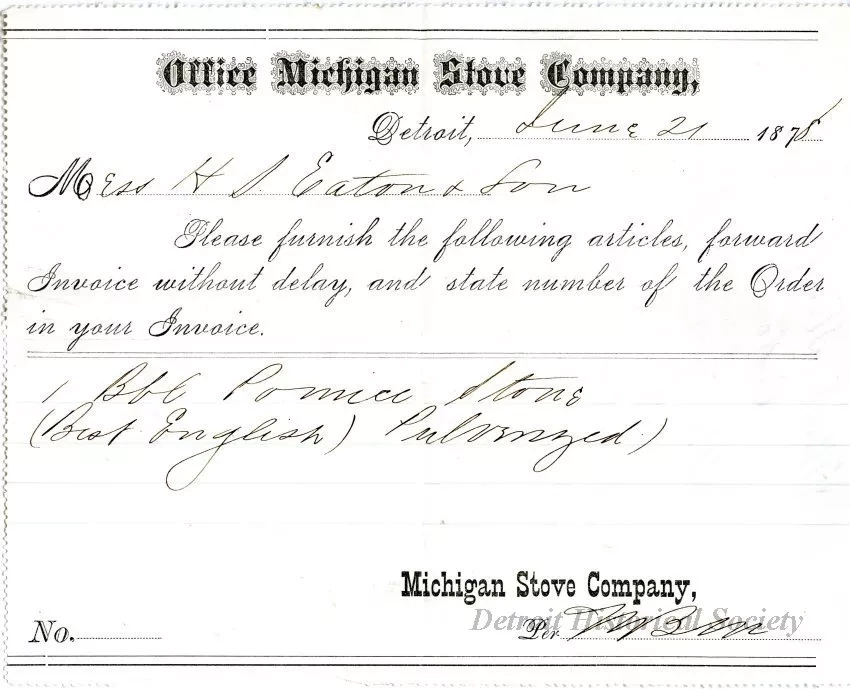 Office Michigan Stove Company,
Detroit, June 21 1878
Mess H S Eaton & Son
Please furnish the following articles, forward
Invoice without delay, and state number of the Order
in your Invoice.
1 Bbl Pomice Stone
(Best English) Pulverized)
Michigan Stove Company,
Detroit Historical Society
No. Per